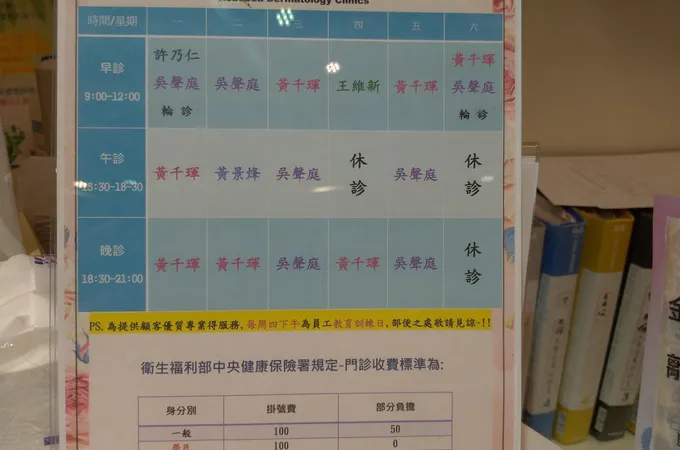 Dermatology Clinics
時間/星期 一 二 三 四 五 六
早診 9:00-12:00 許乃仁 吳聲庭 輪診 吳聲庭 黃千琿 王維新 黃千琿 黃千琿 吳聲庭 輪診
午診 15:30-18-30 黃千琿 黃景烽 吳聲庭 休診 吳聲庭 休診
晚診 18:30-21:00 黃千琿 黃千琿 吳聲庭 黃千琿 吳聲庭 休診
PS.為提供顧客優質專業得服務,每周四下午為員工教育訓練日,部便之處敬請見諒~!!
衛生福利部中央健康保險署規定-門診收費標準為:
身分別 掛號費 部分負擔
一般 100 50
榮民 100 0
金
離